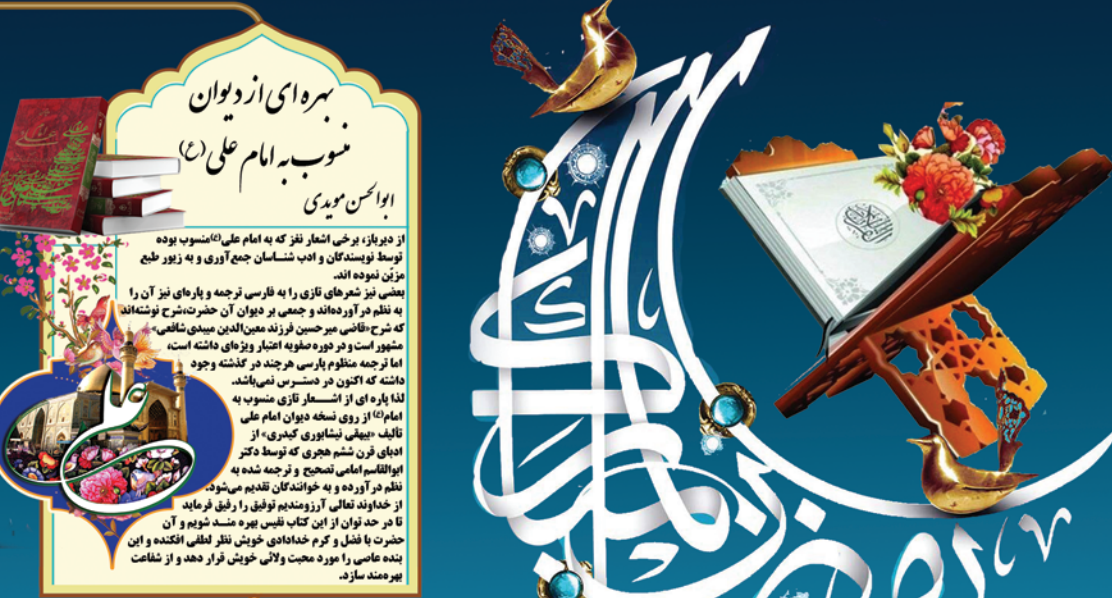 بهره ای از دیوان
منسوب به امام علی (ع)
ابوالحسن مویدی
از دیرباز، برخی اشعار نغز که به امام علی(ع)منسوب بوده
توسط نویسندگان و ادب شنـاسان جمع‌آوری و به زیور طبع
مزیّن نموده اند.
بعضی نیز شعرهای تازی را به فارسی ترجمه و پاره‌ای نیز آن را
به نظم درآورده‌اند و جمعی بر دیوان آن حضرت،شرح نوشته‌اند
که شرح«قاضی میرحسین فرزند معین‌الدین میبدی شافعی»
مشهور است و در دوره صفویه اعتبار ویژه‌ای داشته است،
اما ترجمه منظوم پارسی هرچند در گذشته وجود
داشته که اکنون در دستـرس نمی‌باشد.
لذا پاره ای از اشـــعار تازی منسوب به
امام(ع) از روی نسخه دیوان امام علی
تألیف «بیهقی نیشابوری کیدری» از
ادبای قرن ششم هجری که توسط دکتر
ابوالقاسم امامی تصحیح و ترجمه شده به
نظم درآورده و به خوانندگان تقدیم می‌شود.
از خداوند تعالی آرزومندیم توفیق را رفیق فرماید
تا در حد توان از این کتاب نفیس بهره منــد شویم و آن
حضرت با فضل و کرم خدادادی خویش نظر لطفی افکنده و این
بنده عاصی را مورد محبت ولائی خویش قرار دهد و از شفاعت
بهره‌مند سازد.
علی
رمضان